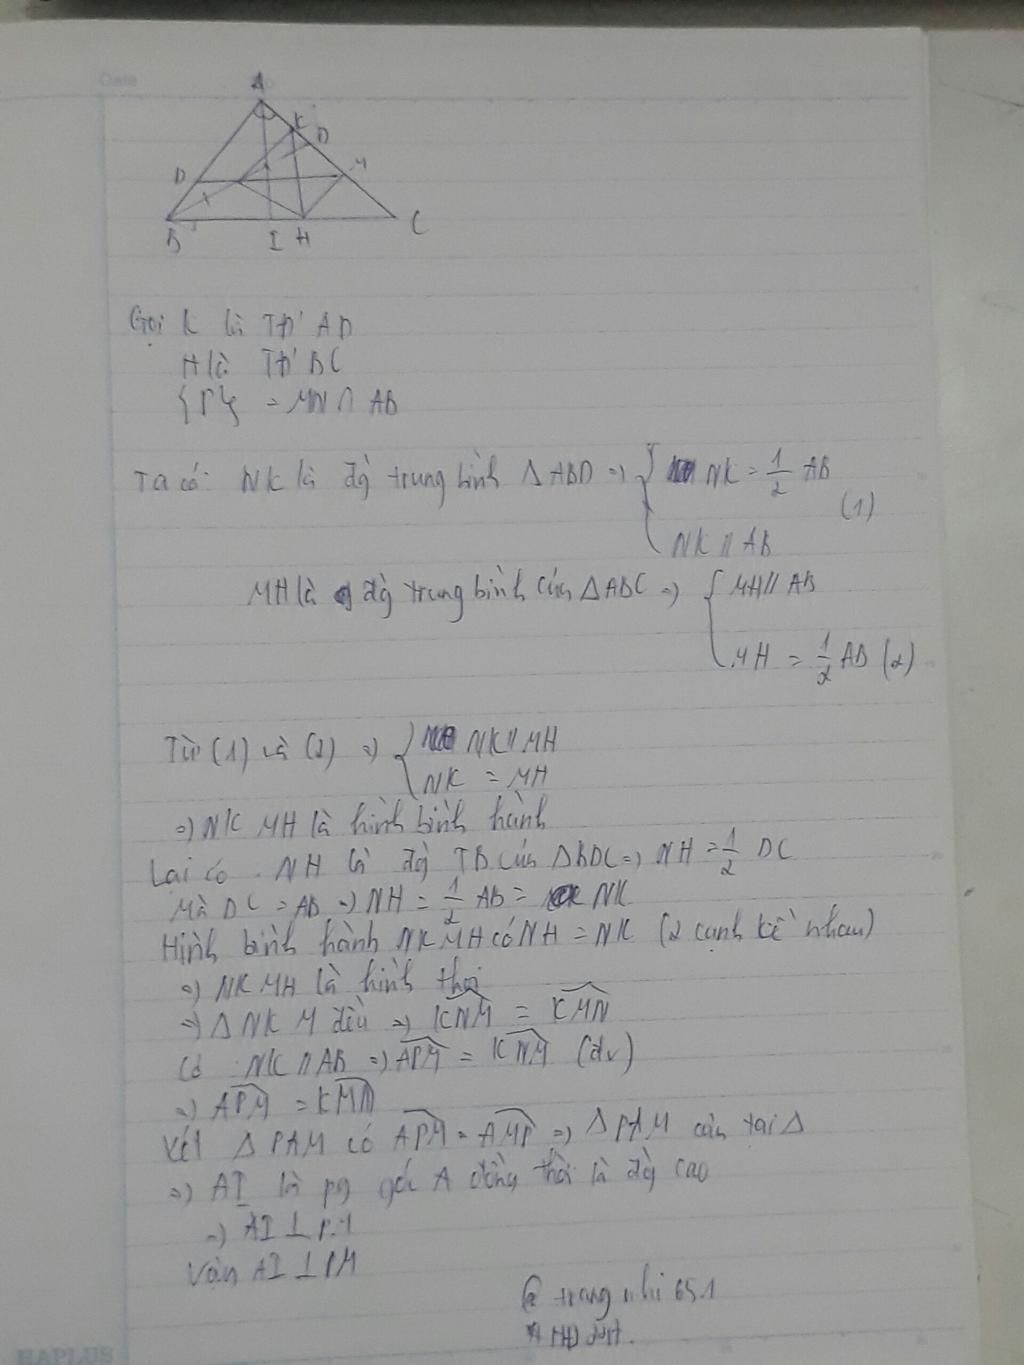 Date
A
K
D
D
M
B
I H
C
Gọi K là TĐ' AD
H là TĐ' BC
{P} = MN ∩ AB
Ta có: NK là đg trung bình Δ ABD => { NK = 1/2 AB
(1)
NK // AB
MH là đg trung bình của ΔABC => { MH // AB
MH = 1/2 AB (2)
Từ (1) và (2) => { NK // MH
NK = MH
=> NK MH là hình bình hành
Lại có . NH là đg TB của ΔBDC => NH = 1/2 DC
Mà DC = AB => NH = 1/2 AB = NK
Hình bình hành NKMH có NH = NK (2 cạnh kề nhau)
=> NKMH là hình thoi
=> Δ NKM đều => KNM = KMN
Có NK // AB => APM = KNM (đv)
=> APM = KMN
Xét Δ PAM có APM = AMP => Δ PAM cân tại A
=> AI là pg góc A đồng thời là đg cao
=> AI ⊥ PM
Vậy AI ⊥ PM
@ trang nhi 651
HAPLUS